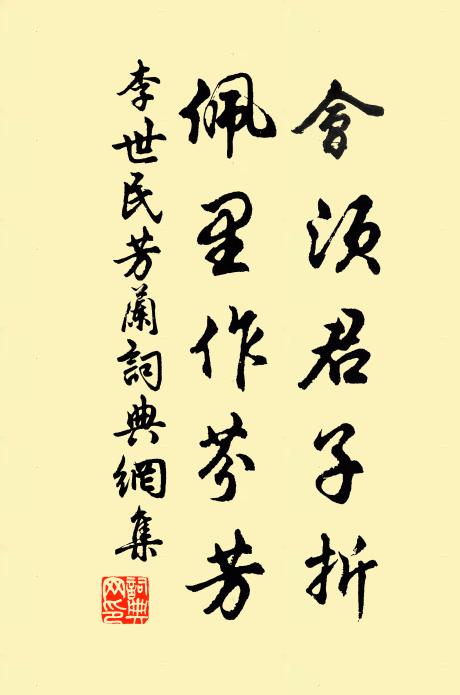 會須君子折
佩里作芬芳
李世民芳蘭詞典網集
詞典網印